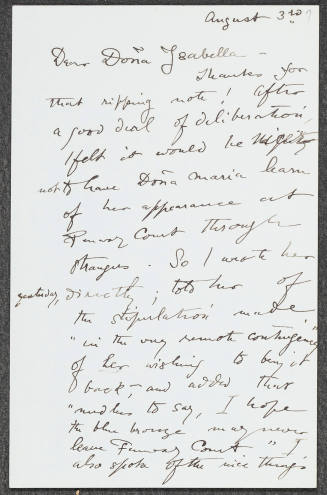 August 3rd
Dear Doña Ysabella —
Thanks for
that ripping note! After
a good deal of deliberation,
I felt it would be
not to have Doña Maria learn
of her appearance at
Fenway Court through
strangers. So I wrote her
yesterday, directly; told her of
the stipulation made,
"in the very remote contingency
of her wishing to buy it
back,"—and added that
"needless to say, I hope
the blue bronze may never
leave Fenway Court". I
also spoke of the nice things